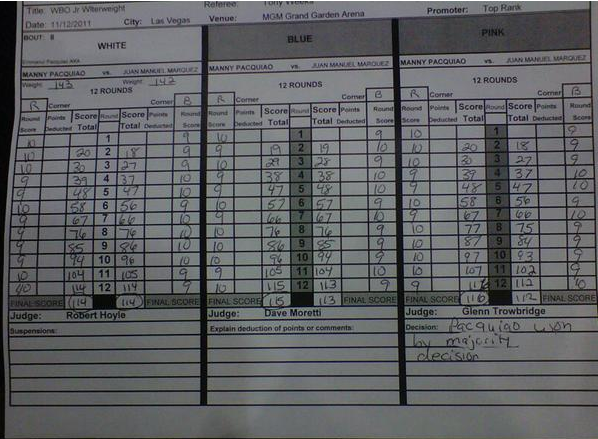 Title: WBO Jr Wlterweight Referee: Promoter: Top Rank
Date: 11/12/2011 City: Las Vegas Venue: MGM Grand Garden Arena
BOUT: 8
WHITE BLUE PINK
MANNY PACQUIAO vs. JUAN MANUEL MARQUEZ MANNY PACQUIAO vs. JUAN MANUEL MARQUEZ MANNY PACQUIAO vs. JUAN MANUEL MARQUEZ
Weight: 143 Weight: 142
12 ROUNDS 12 ROUNDS 12 ROUNDS
R Corner Corner B R Corner Corner B R Corner Corner B
Round Score Points Deducted Score Total Round Score Total Points Deducted Round Score Round Score Points Deducted Score Total Round Score Total Points Deducted Round Score Round Score Points Deducted Score Total Round Score Total Points Deducted Round Score
10 1 9 10 1 9 10 1 9
10 20 2 18 9 9 19 2 19 10 10 20 2 18 9
10 30 3 27 9 10 29 3 28 9 10 30 3 27 9
9 39 4 37 10 9 38 4 38 10 9 39 4 37 10
9 48 5 47 10 9 47 5 48 10 9 48 5 47 10
10 58 6 56 9 10 57 6 57 9 10 58 6 56 9
9 67 7 66 10 9 66 7 67 10 9 67 7 66 10
9 76 8 76 10 10 76 8 76 9 10 77 8 75 9
9 85 9 86 10 10 86 9 85 9 10 87 9 84 9
9 94 10 96 10 10 96 10 94 9 10 97 10 93 9
10 104 11 105 9 9 105 11 104 10 10 107 11 102 9
10 114 12 114 9 10 115 12 113 9 9 116 12 112 10
FINAL SCORE 114 114 FINAL SCORE FINAL SCORE 115 113 FINAL SCORE FINAL SCORE 116 112 FINAL SCORE
Judge: Robert Hoyle Judge: Dave Moretti Judge: Glenn Trowbridge
Suspensions: Explain deduction of points or comments: Decision: Pacquiao won
by majority
decision